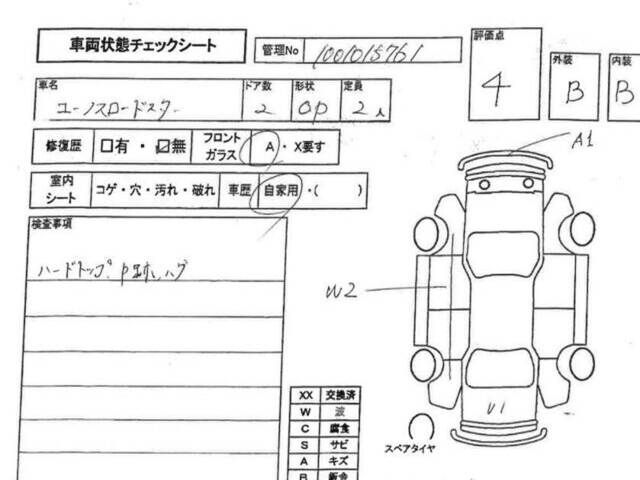 車両状態チェックシート
管理No 1001015761
評価点 4
外装 B
内装 B
車名 ユーノスロードスター
ドア数 2
形状 OP
定員 2人
修復歴 □有・☑無 フロントガラス A・X要す
室内シート コゲ・穴・汚れ・破れ 車歴 自家用・( )
検査事項
ハードトップ
A1
W2
U1
スペアタイヤ
XX 交換済
W 波
C 腐食
S サビ
A キズ
B 鈑金